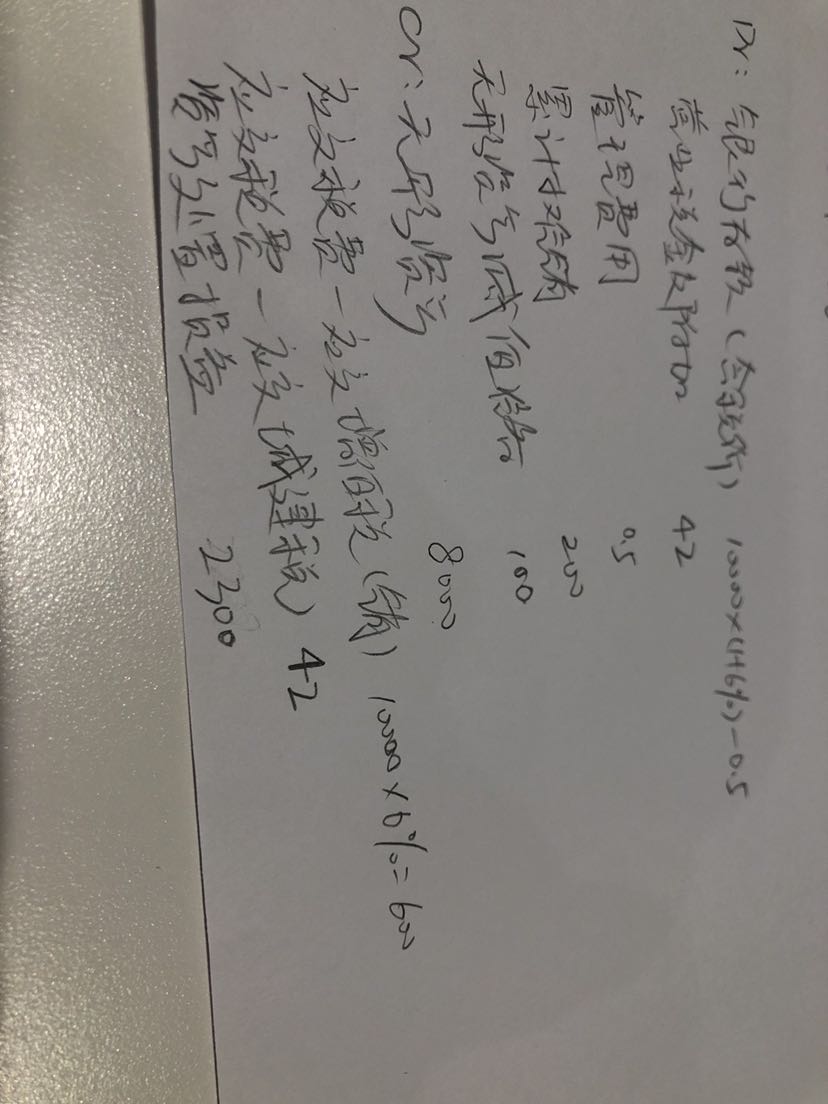 Dr: 银行存款（含税价） 10000×(1+6%)-0.5
营业税金及附加 42
管理费用 0.5
累计摊销 200
无形资产减值准备 100
Cr: 无形资产 8000
应交税费-应交增值税（销） 10000×6%=600
应交税费-应交城建税） 42
资产处置损益 2300